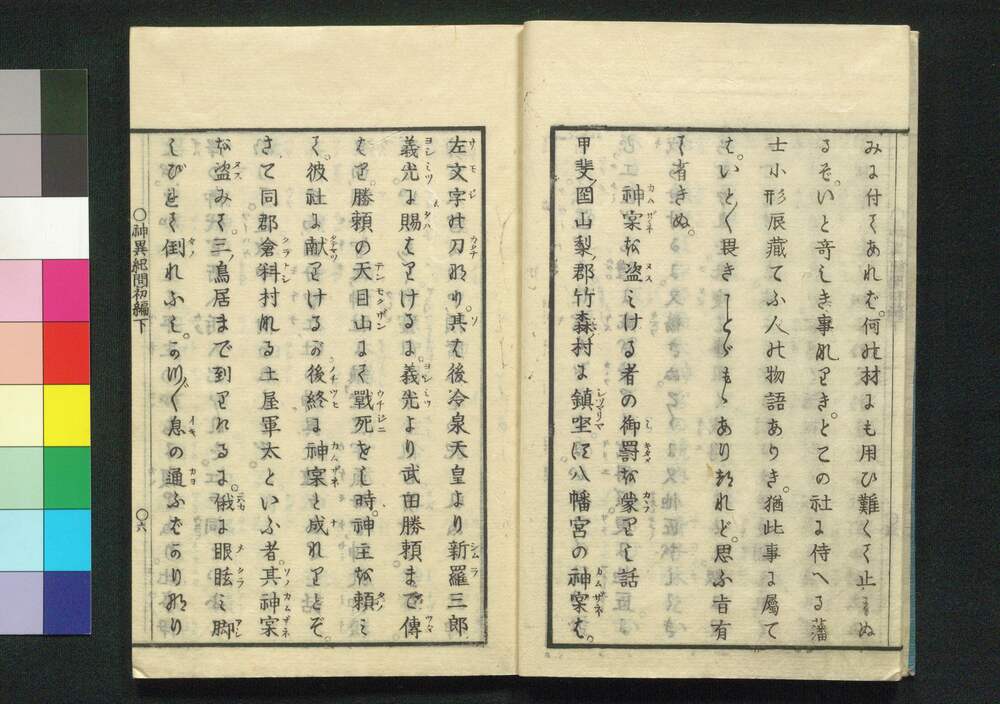 みに付てあれば。何の材にも用ひ難くて止みぬ
るぞ。いと奇しき事なりき。とこの社に侍へる藩
士小形辰藏てふ人の物語ありき。猶此事に屬て
は。いとく畏きことゞもゝありけれど。思ふ旨有
て省きぬ。
神寀を盗みける者の御罰を蒙りし話
甲斐国山梨郡竹森村に鎮坐す八幡宮の神寀は。
左文字の刀なり。其は後冷泉天皇より新羅三郎
義光に賜はりけるに。義光より武田勝頼まで傳
はり。勝頼の天目山にて戰死をし時。神主を頼み
て彼社に献りけるが後終に神寀と成れりとぞ。
さて同郡倉科村なる土屋軍太といふ者。其神寀
を盗みて。三鳥居まで到りれるに。俄に眼眩み脚
しびれて倒れふし。かつ〴〵息の通ふばかりなり
○神異紀聞初編下 ○六